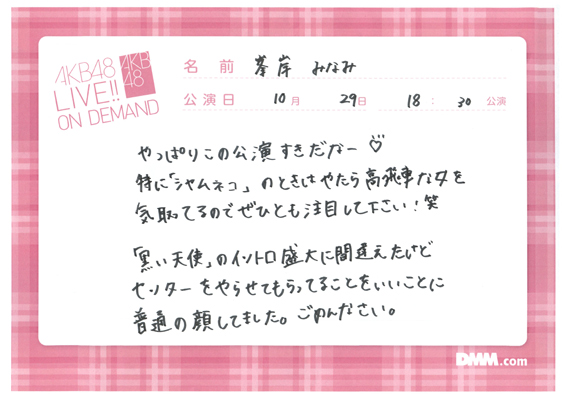 AKB48
LIVE!!
ON DEMAND
AKB
48
名前 峯岸 みなみ
公演日 10月 29日 18:30 公演
やっぱりこの公演すきだなー♡
特に「シャムネコ」のときはやたら高飛車な女を
気取てるのでぜひとも注目して下さい!笑
「黒い天使」のイントロ盛大に間違えたけど
センターをやらせてもらってることをいいことに
普通の顔してました。ごめんなさい。
DMM.com